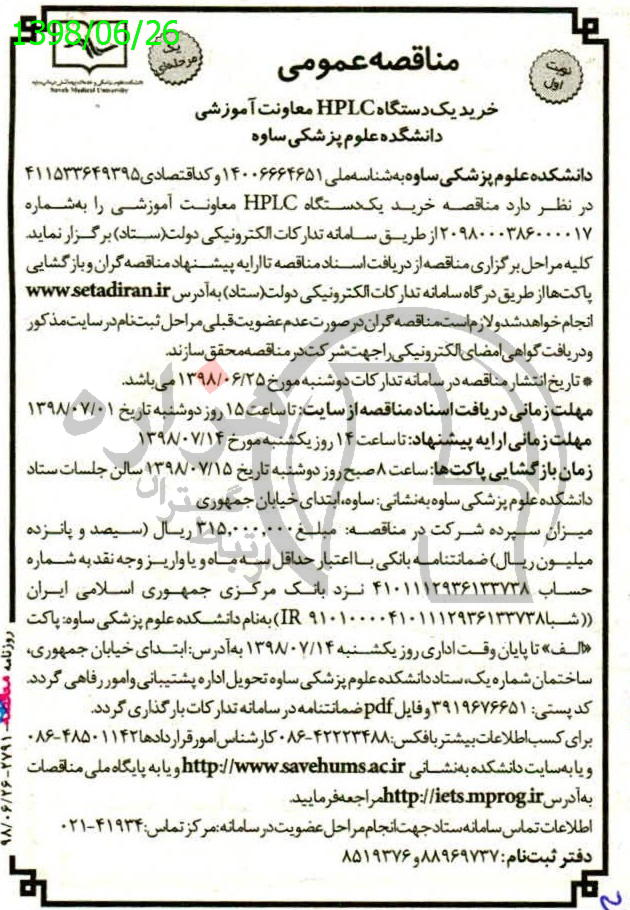 1398/06/26
Saveh Medical University
یک مرحله‌ای
نوبت اول
مناقصه عمومی
خرید یک دستگاه HPLC معاونت آموزشی
دانشگده علوم پزشکی ساوه
دانشکده علوم پزشکی ساوه به شناسه ملی ۱۴۰۰۶۶۶۴۶۵۱ و کد اقتصادی ۴۱۱۵۳۳۶۴۹۳۹۵
در نظر دارد مناقصه خرید یک دستگاه HPLC معاونت آموزشی را به شماره
۲۰۹۸۰۰۰۳۸۶۰۰۰۰۱۷ از طریق سامانه تدارکات الکترونیکی دولت (ستاد) برگزار نماید.
کلیه مراحل برگزاری مناقصه از دریافت اسناد مناقصه تا ارایه پیشنهاد مناقصه گران و بازگشایی
پاکت ها از طریق درگاه سامانه تدارکات الکترونیکی دولت (ستاد) به آدرس www.setadiran.ir
انجام خواهد شد و لازم است مناقصه گران در صورت عدم عضویت قبلی مراحل ثبت نام در سایت مذکور
و دریافت گواهی امضای الکترونیکی را جهت شرکت در مناقصه محقق سازند.
* تاریخ انتشار مناقصه در سامانه تدارکات دوشنبه مورخ ۱۳۹۸/۰۶/۲۵ می باشد.
مهلت زمانی دریافت اسناد مناقصه از سایت: تا ساعت ۱۵ روز دوشنبه تاریخ ۱۳۹۸/۰۷/۰۱
مهلت زمانی ارایه پیشنهاد: تا ساعت ۱۴ روز یکشنبه مورخ ۱۳۹۸/۰۷/۱۴
زمان بازگشایی پاکت ها: ساعت ۸ صبح روز دوشنبه تاریخ ۱۳۹۸/۰۷/۱۵ سالن جلسات ستاد
دانشکده علوم پزشکی ساوه به نشانی: ساوه، ابتدای خیابان جمهوری
میزان سپرده شرکت در مناقصه: مبلغ ۳۱۵,۰۰۰,۰۰۰ ریال (سیصد و پانزده
میلیون ریال) ضمانتنامه بانکی با اعتبار حداقل سه ماه و یا واریز وجه نقد به شماره
حساب ۴۱۰۱۱۱۲۹۳۶۱۳۳۷۳۸ نزد بانک مرکزی جمهوری اسلامی ایران
((شبا IR ۹۱۰۱۰۰۰۰۴۱۰۱۱۱۲۹۳۶۱۳۳۷۳۸) به نام دانشکده علوم پزشکی ساوه: پاکت
«الف» تا پایان وقت اداری روز یکشنبه ۱۳۹۸/۰۷/۱۴ به آدرس: ابتدای خیابان جمهوری،
ساختمان شماره یک، ستاد دانشکده علوم پزشکی ساوه تحویل اداره پشتیبانی و امور رفاهی گردد.
کد پستی: ۳۹۱۹۶۷۶۶۵۱ و فایل pdf ضمانتنامه در سامانه تدارکات بارگذاری گردد.
برای کسب اطلاعات بیشتر با فکس: ۴۲۲۲۳۴۸۸-۰۸۶ کارشناس امور قراردادها ۴۸۵۰۱۱۴۲-۰۸۶
و یا به سایت دانشکده به نشانی http://www.savehums.ac.ir و یا به پایگاه ملی مناقصات
به آدرس http://iets.mprog.ir مراجعه فرمایید.
اطلاعات تماس سامانه ستاد جهت انجام مراحل عضویت در سامانه: مرکز تماس: ۴۱۹۳۴-۰۲۱
دفتر ثبت نام: ۸۸۹۶۹۷۳۷ و ۸۵۱۹۳۷۶
روزنامه مناقصه ۲۷۹۱-۹۸/۰۶/۲۶
هزاره
گسترش
ارتباط